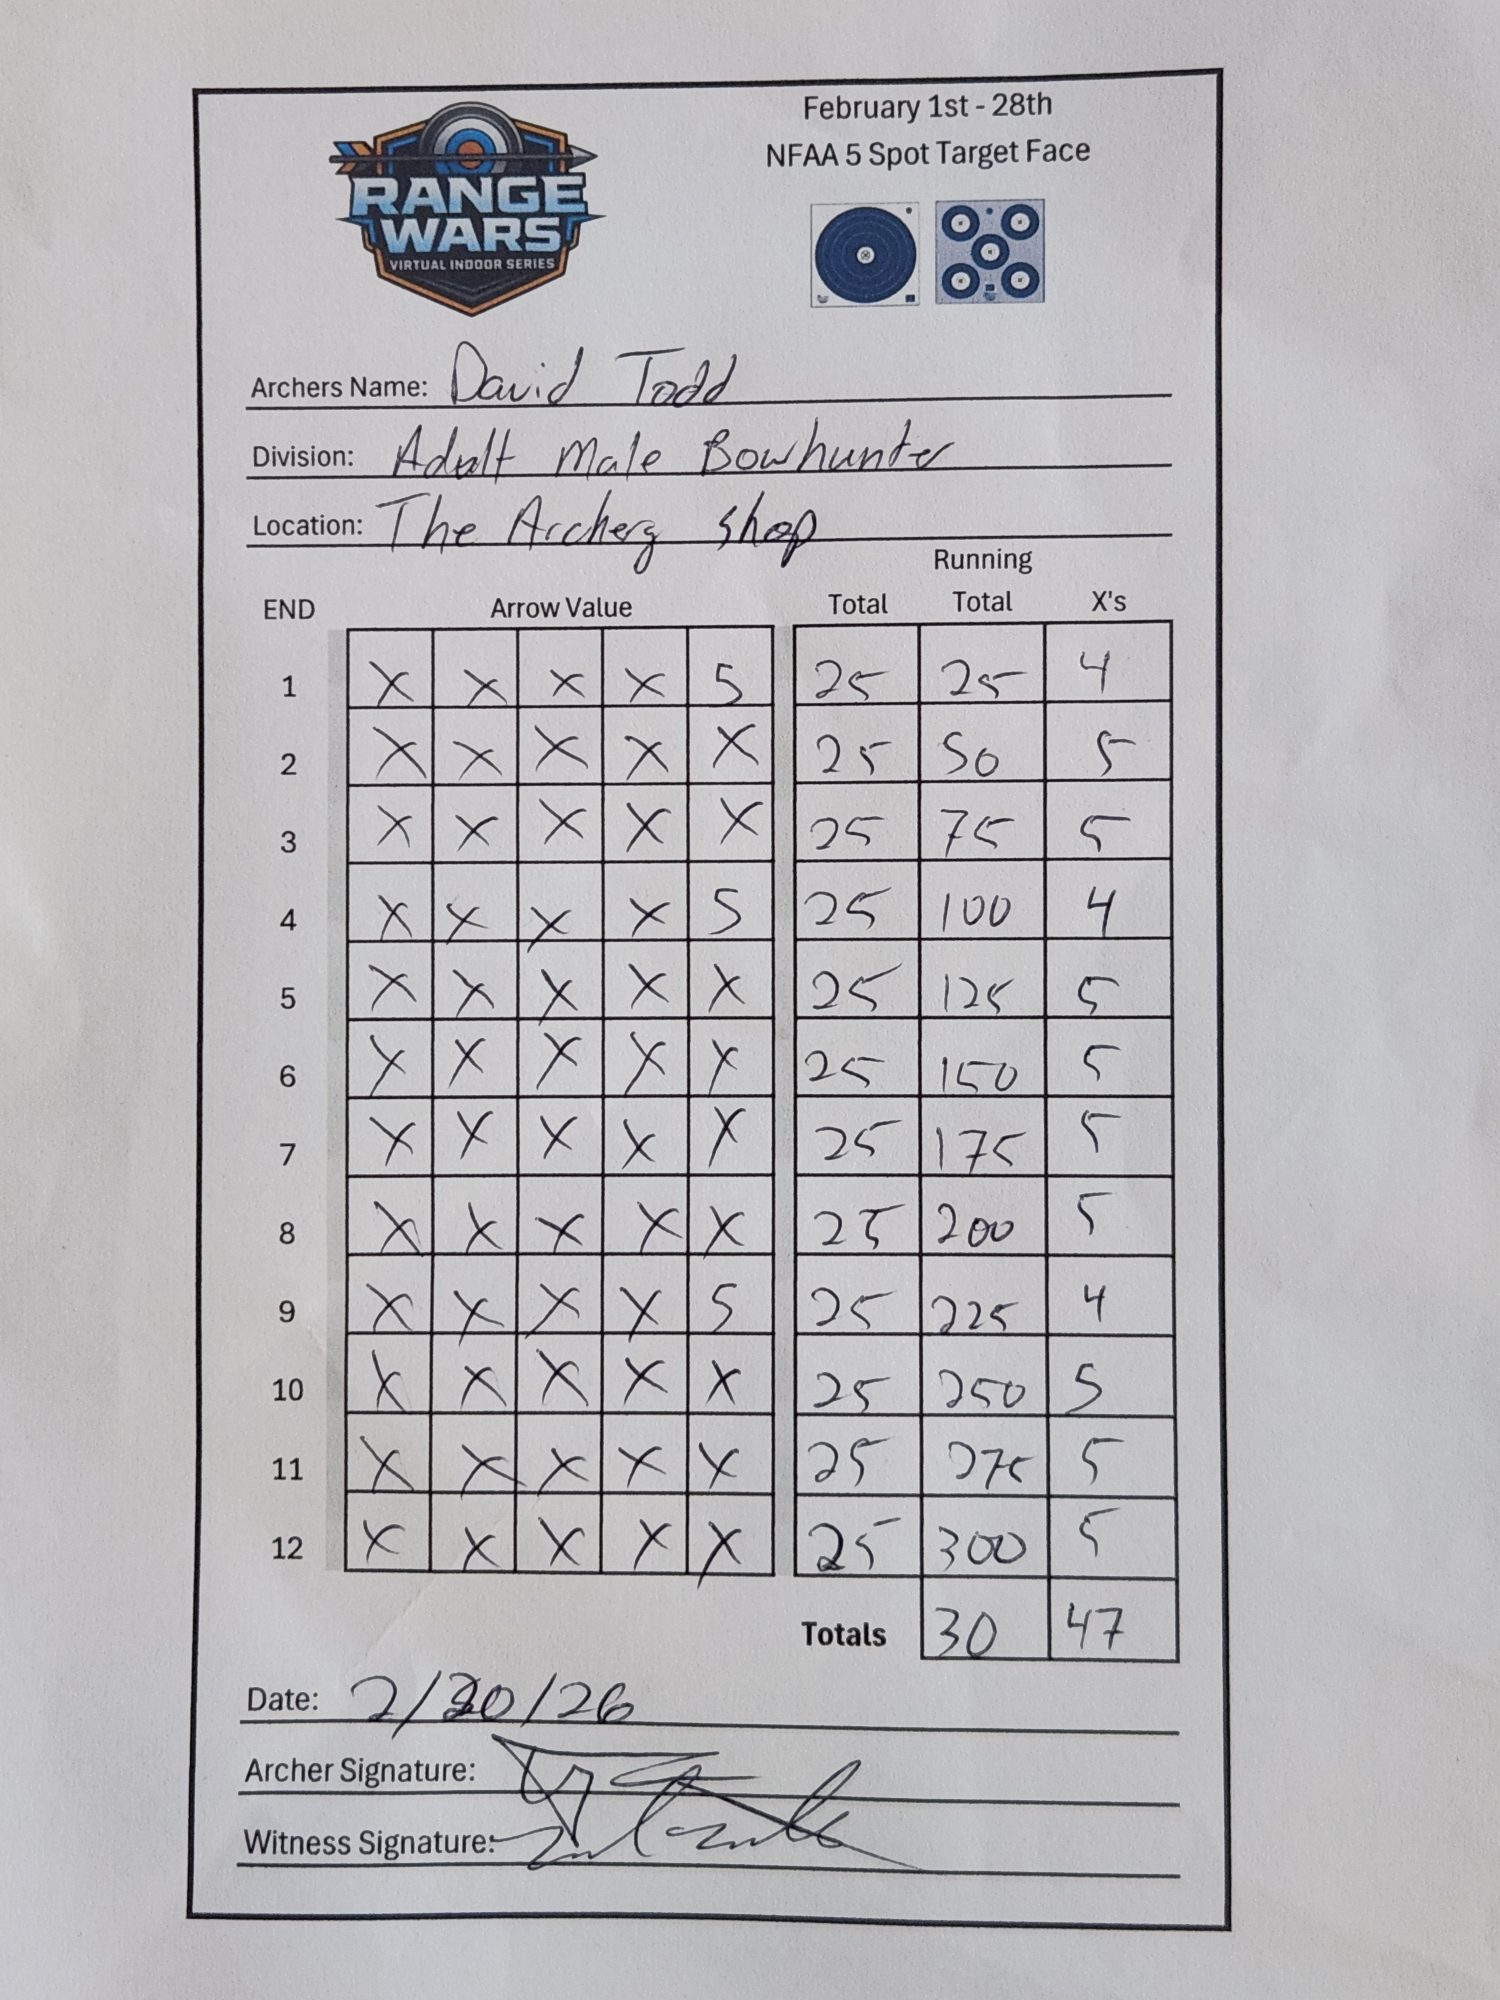 February 1st - 28th
NFAA 5 Spot Target Face
RANGE
WARS
VIRTUAL INDOOR SERIES
Archers Name: David Todd
Division: Adult Male Bowhunter
Location: The Archery Shop
Running
END Arrow Value Total Total X's
1 X X X X 5 25 25 4
2 X X X X X 25 50 5
3 X X X X X 25 75 5
4 X X X X 5 25 100 4
5 X X X X X 25 125 5
6 X X X X X 25 150 5
7 X X X X X 25 175 5
8 X X X X X 25 200 5
9 X X X X 5 25 225 4
10 X X X X X 25 250 5
11 X X X X X 25 275 5
12 X X X X X 25 300 5
Totals 30 47
Date: 2/20/26
Archer Signature:
Witness Signature: